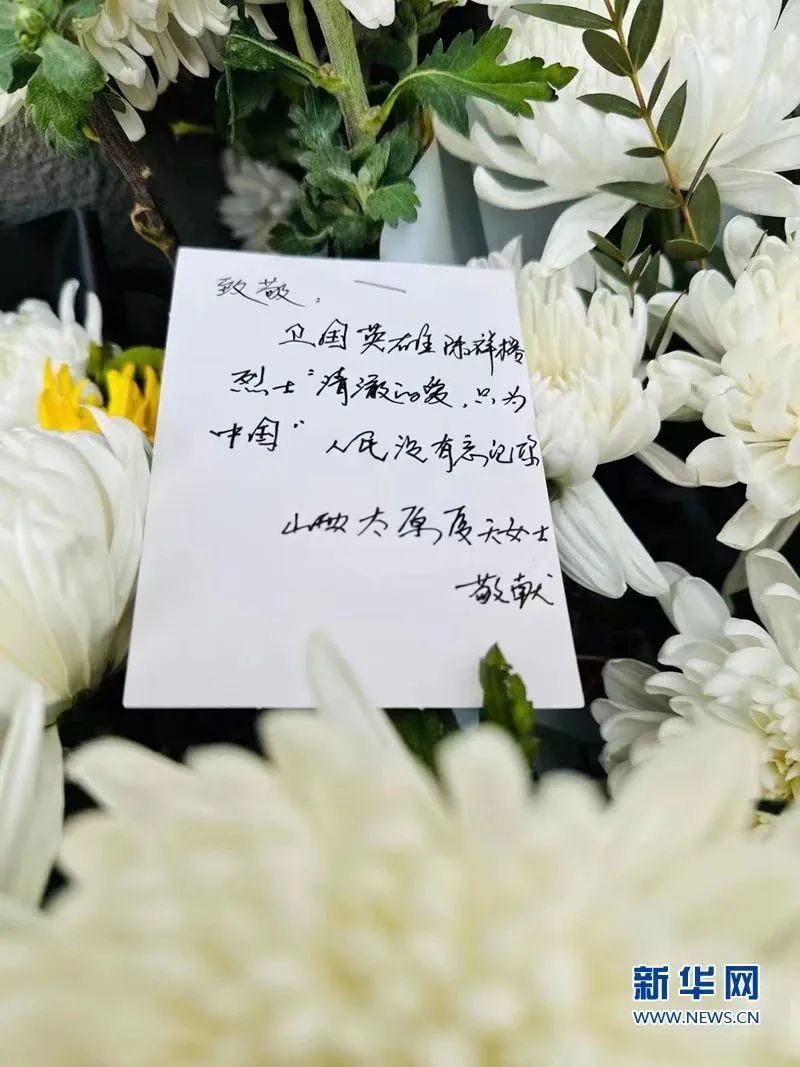 致敬：
卫国英雄陈祥榕
烈士“清澈的爱，只为
中国”人民没有忘记
山西太原夏天女士
敬献
新华网
WWW.NEWS.CN